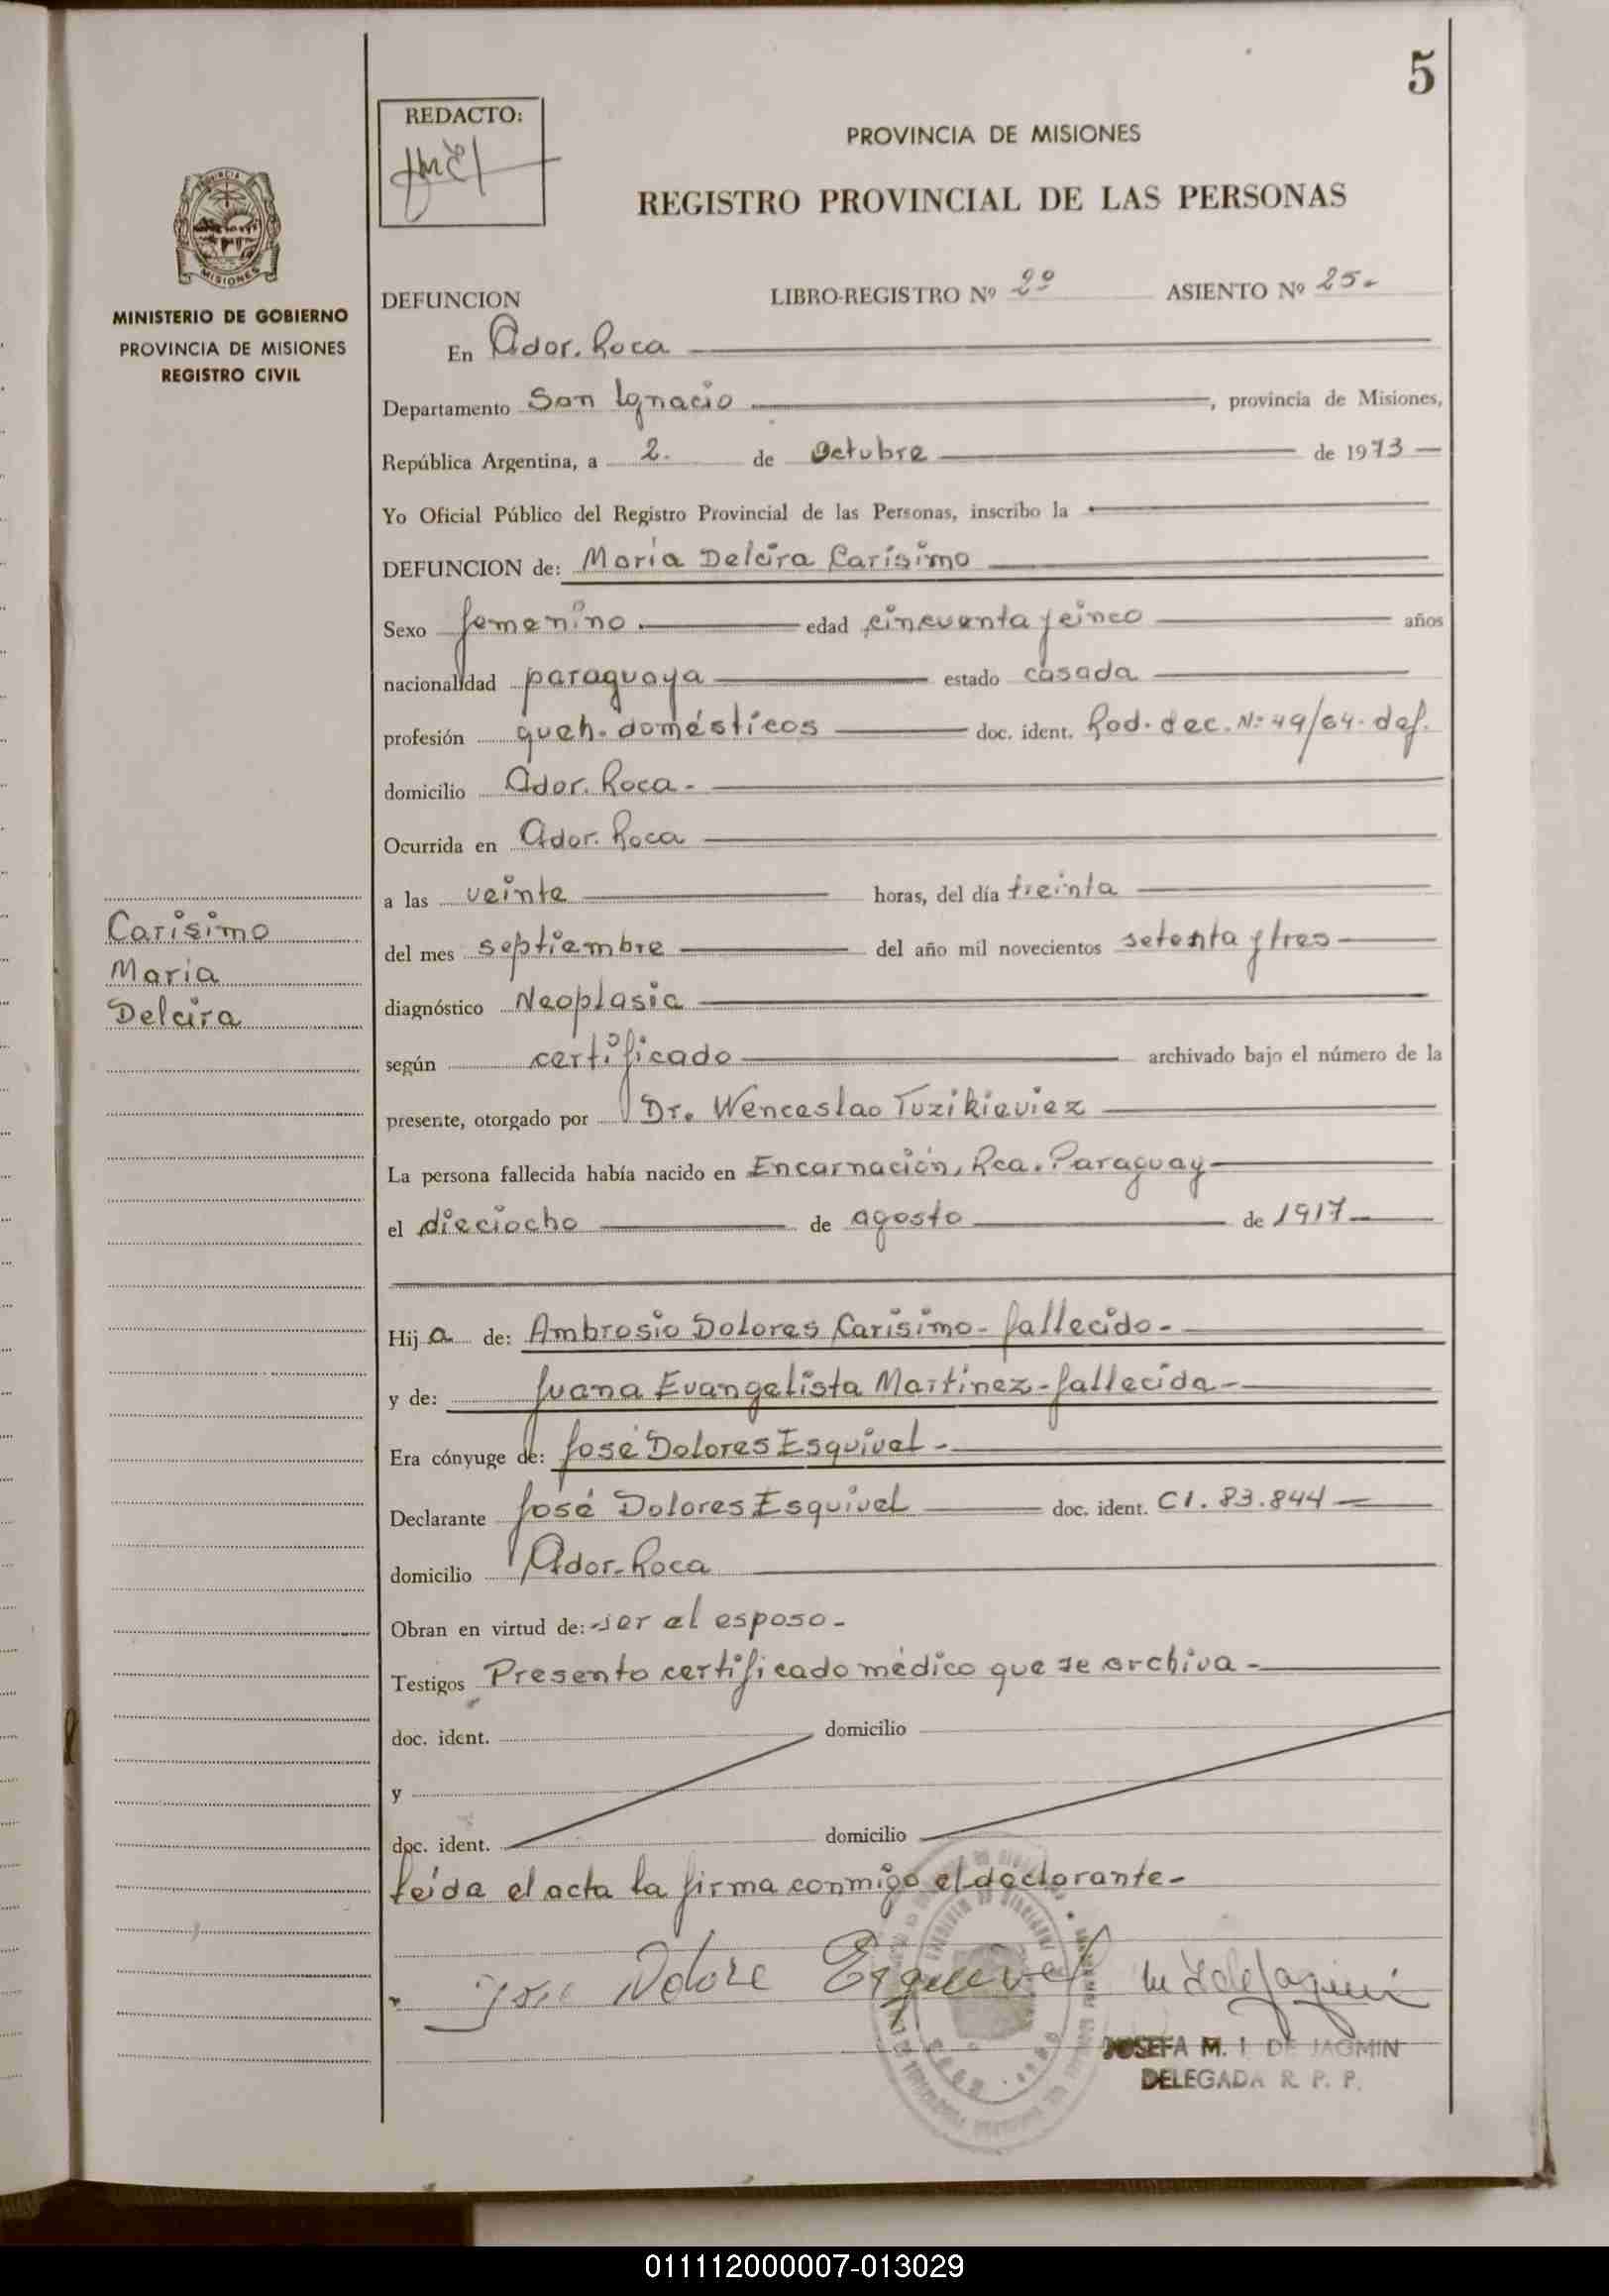 5
REDACTO:
PROVINCIA DE MISIONES
REGISTRO PROVINCIAL DE LAS PERSONAS
PROVINCIA
MISIONES
MINISTERIO DE GOBIERNO
PROVINCIA DE MISIONES
REGISTRO CIVIL
DEFUNCION LIBRO-REGISTRO Nº 2º ASIENTO Nº 25.-
En Gdor. Roca
Departamento San Ignacio, provincia de Misiones,
República Argentina, a 2. de Octubre de 1973
Yo Oficial Público del Registro Provincial de las Personas, inscribo la
DEFUNCION de: María Delcira Carísimo
Sexo femenino. edad cincuenta y cinco años
nacionalidad paraguaya estado casada
profesión queh. domésticos doc. ident. Rad. dec. Nº 49/64. def.
domicilio Gdor. Roca.-
Ocurrida en Gdor. Roca
a las veinte horas, del día treinta
del mes septiembre del año mil novecientos setenta y tres
diagnóstico Neoplasia
según certificado archivado bajo el número de la
presente, otorgado por Dr. Wenceslao Tuzikieviez
La persona fallecida había nacido en Encarnación, Rca. Paraguay
el dieciocho de agosto de 1917
Hija de: Ambrosio Dolores Carísimo - fallecido.-
y de: Juana Evangelista Martínez - fallecida.-
Era cónyuge de: José Dolores Esquivel.-
Declarante José Dolores Esquivel doc. ident. CI. 83.844
domicilio Gdor. Roca
Obran en virtud de: ser el esposo.-
Testigos Presento certificado médico que se archiva.-
doc. ident. domicilio
y
doc. ident. domicilio
Leída el acta la firma conmigo el declarante.-
José Dolore Esquivel
JOSEFA M. I. DE JAGMIN
DELEGADA R. P. P.
Carísimo
María
Delcira
011112000007-013029